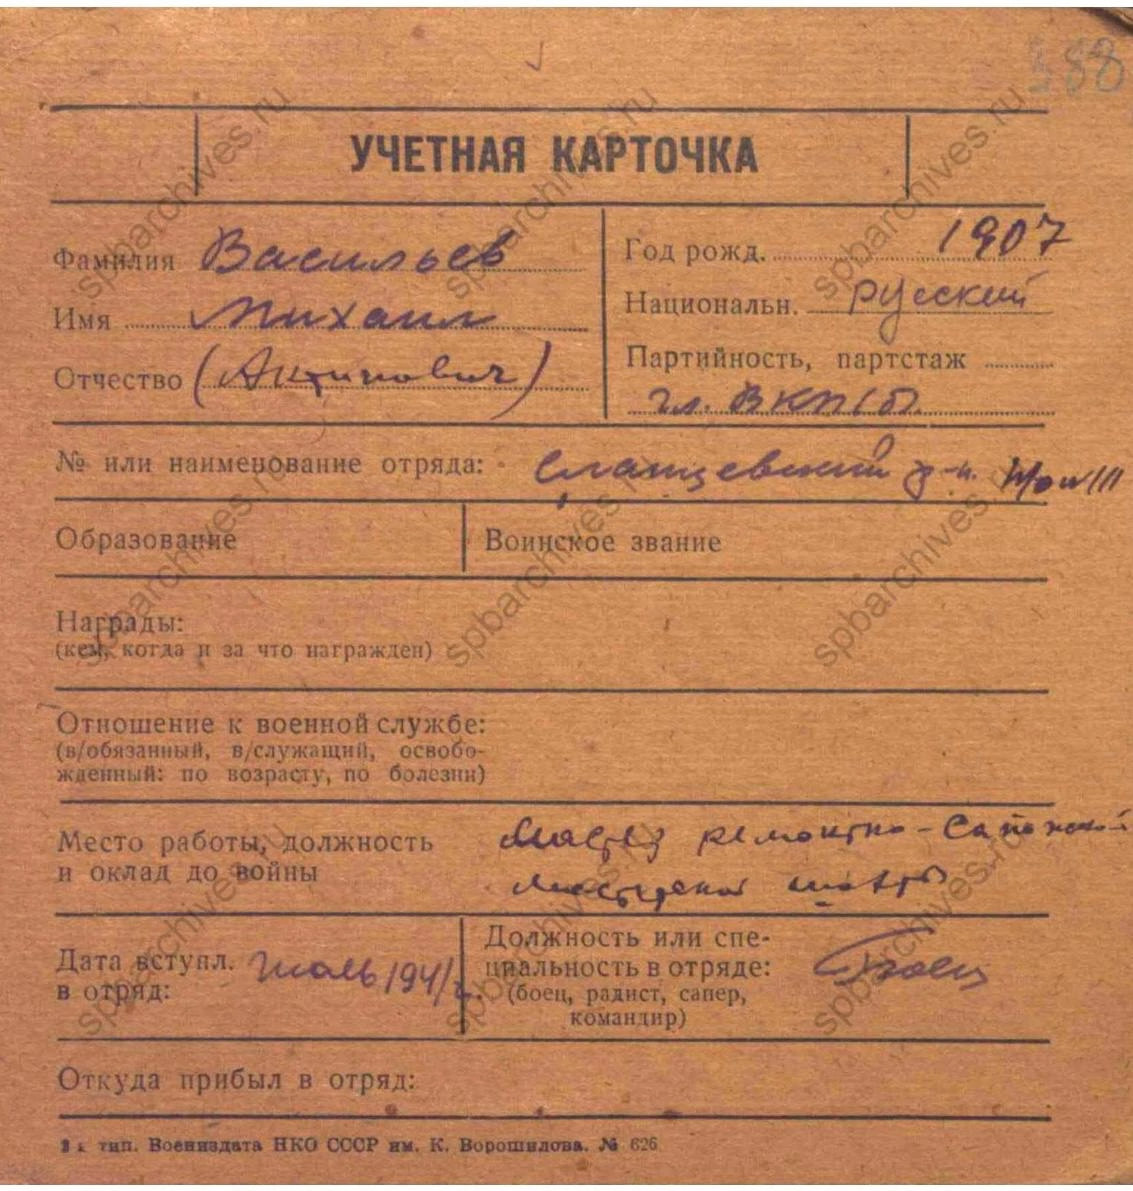 388
УЧЕТНАЯ КАРТОЧКА
Фамилия Васильев
Имя Михаил
Отчество
Год рожд. 1907
Национальн. русский
Партийность, партстаж
чл. ВКП(б)
№ или наименование отряда: Сланцевский р-н.
Образование
Воинское звание
Награды:
(кем, когда и за что награжден)
Отношение к военной службе:
(в/обязанный, в/служащий, освобо-
жденный: по возрасту, по болезни)
Место работы, должность
и оклад до войны
Мастер ремонтно-
шахты
Дата вступл.
в отряд: июль 1941 г.
Должность или спе-
циальность в отряде: Боец
(боец, радист, сапер,
командир)
Откуда прибыл в отряд:
тип. Воениздата НКО СССР им. К. Ворошилова. № 626
spbarchives.ru